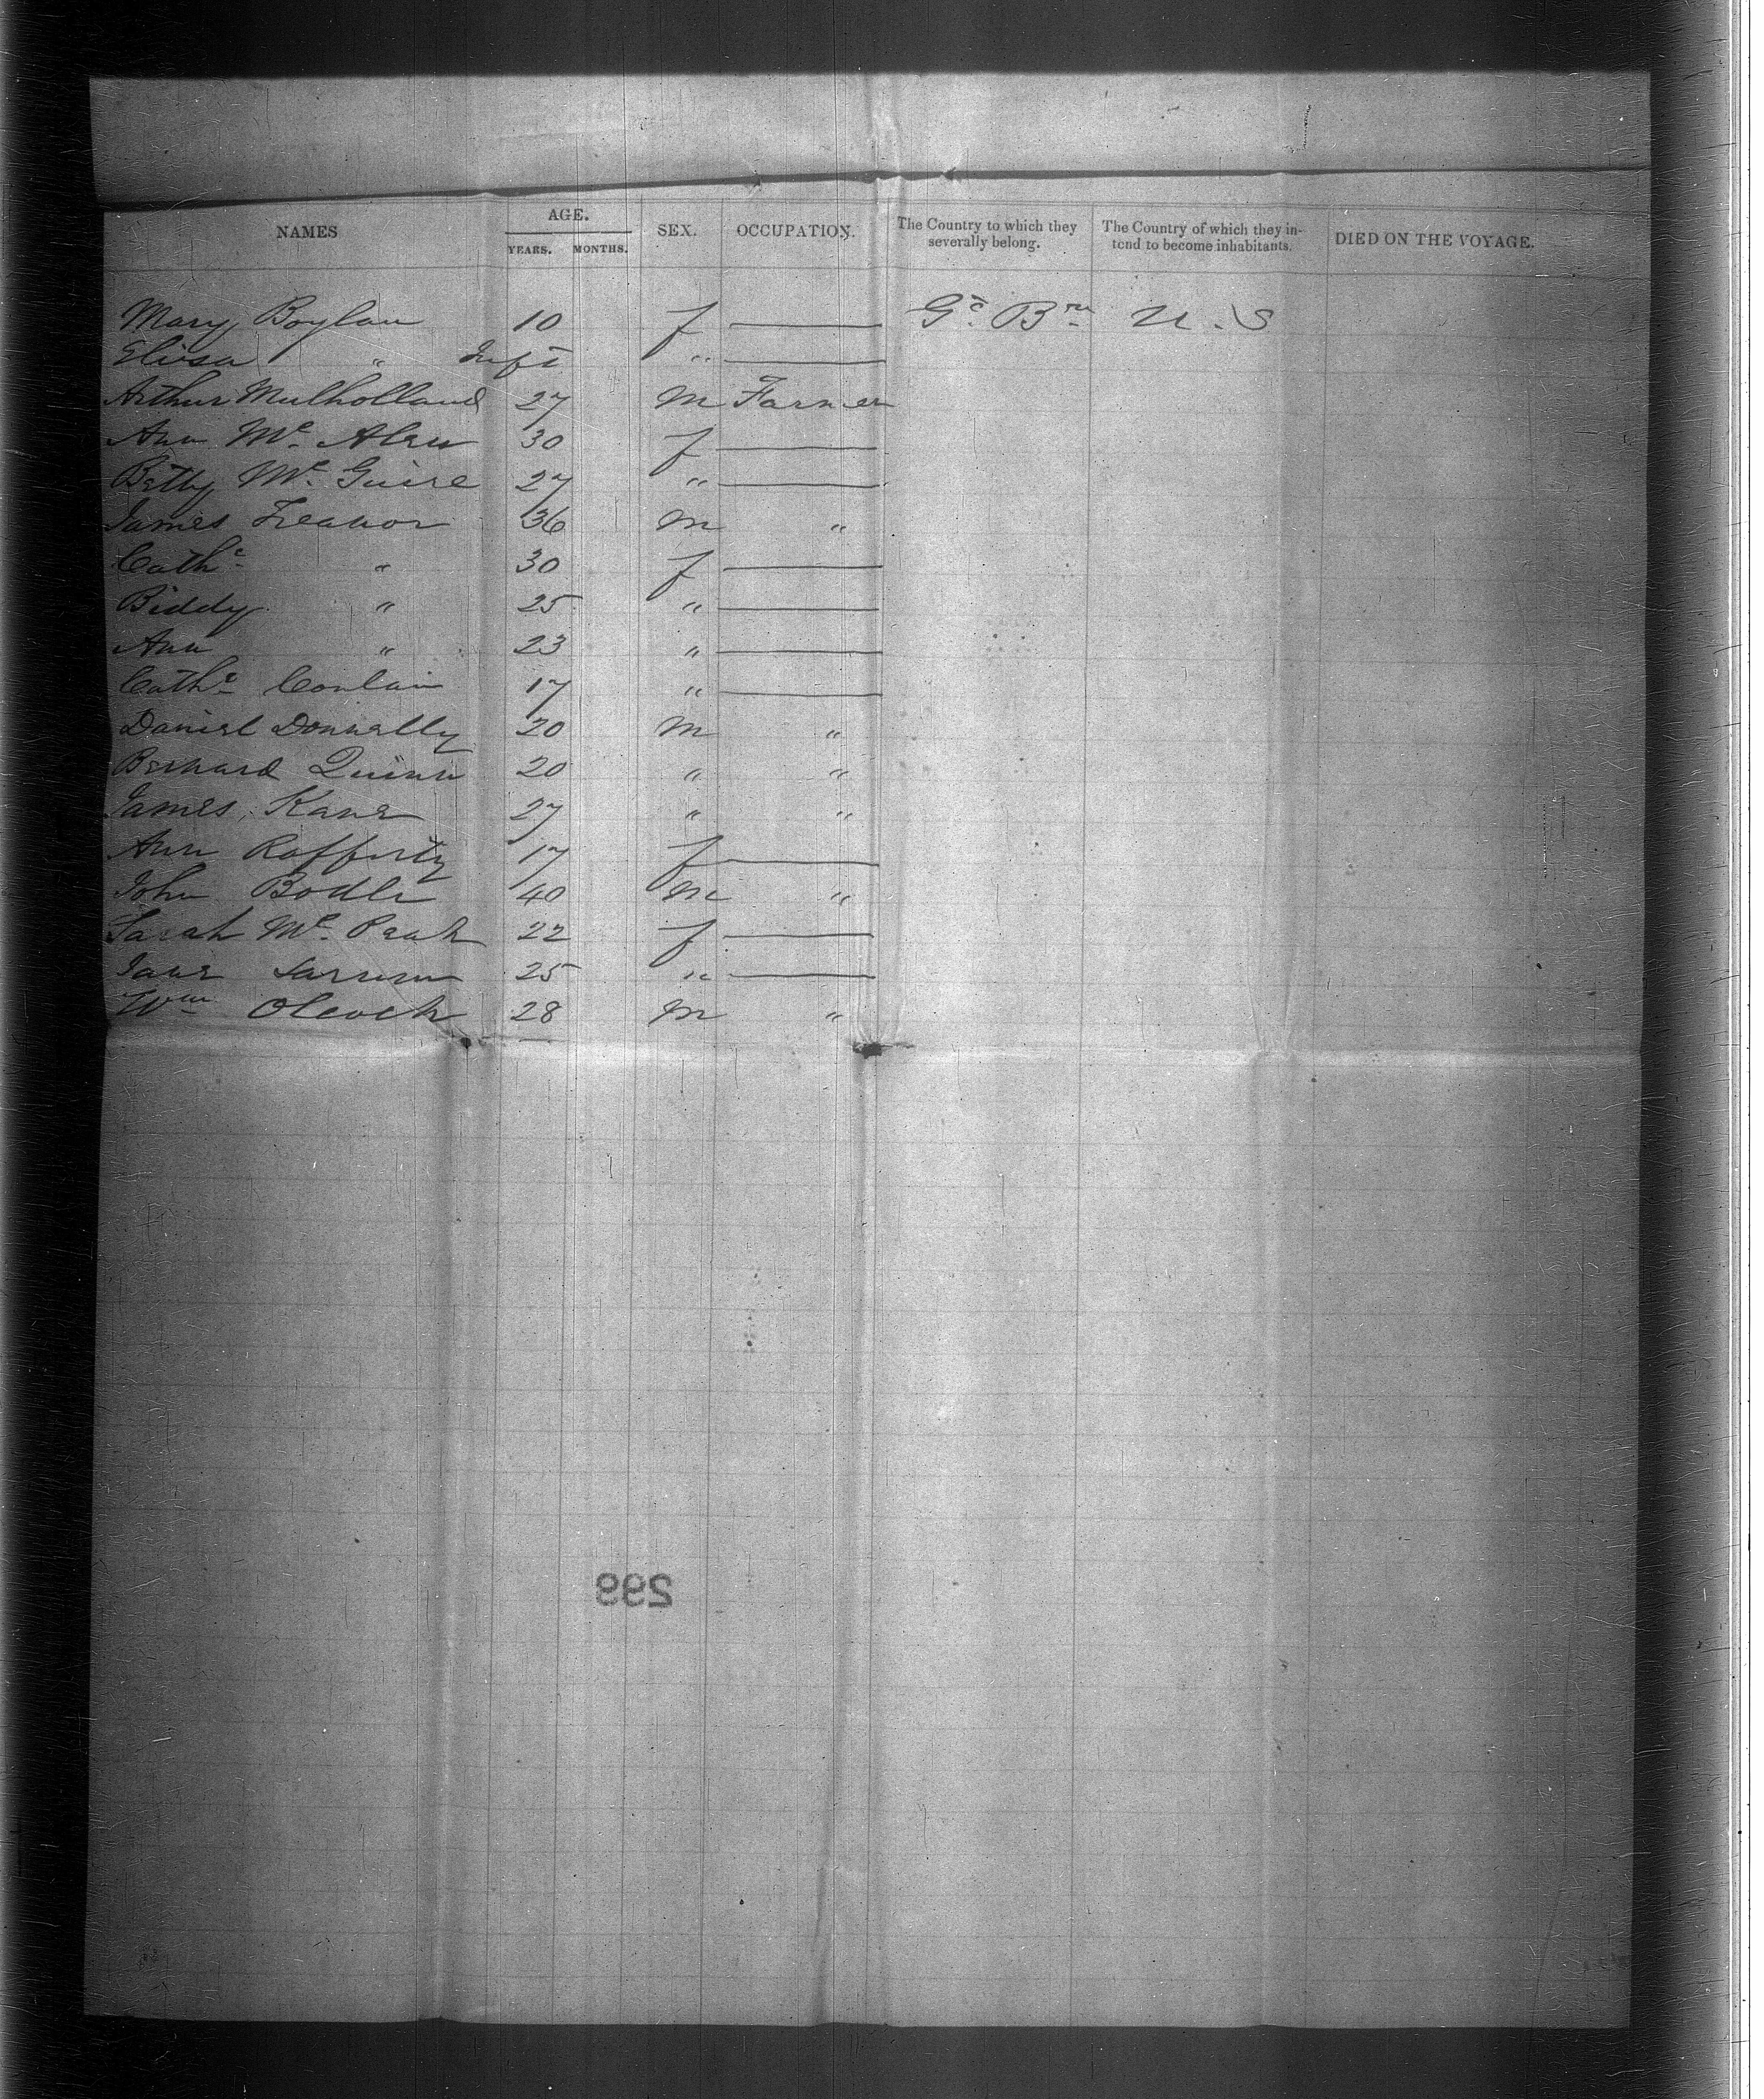 NAMES AGE. YEARS. MONTHS. SEX. OCCUPATION. The Country to which they severally belong. The Country of which they intend to become inhabitants. DIED ON THE VOYAGE.
Mary Boylan 10 f — Gt. Brn. U.S
Eliza " Inft " —
Arthur Mulholland 27 m Farmer
Ann Mc. Alew 30 f —
Betty Mc. Guire 27 " —
James Treanor 36 m "
Cathe. " 30 f —
Biddy " 25 " —
Ann " 23 " —
Cathe. Conlan 17 " —
Daniel Donnelly 20 m "
Bernard Quinn 20 " "
James Kane 27 " "
Ann Rafferty 17 f —
John Bodle 40 m "
Sarah Mc. Peak 22 f —
Jane 25 " —
Wm Olcock 28 m "
299